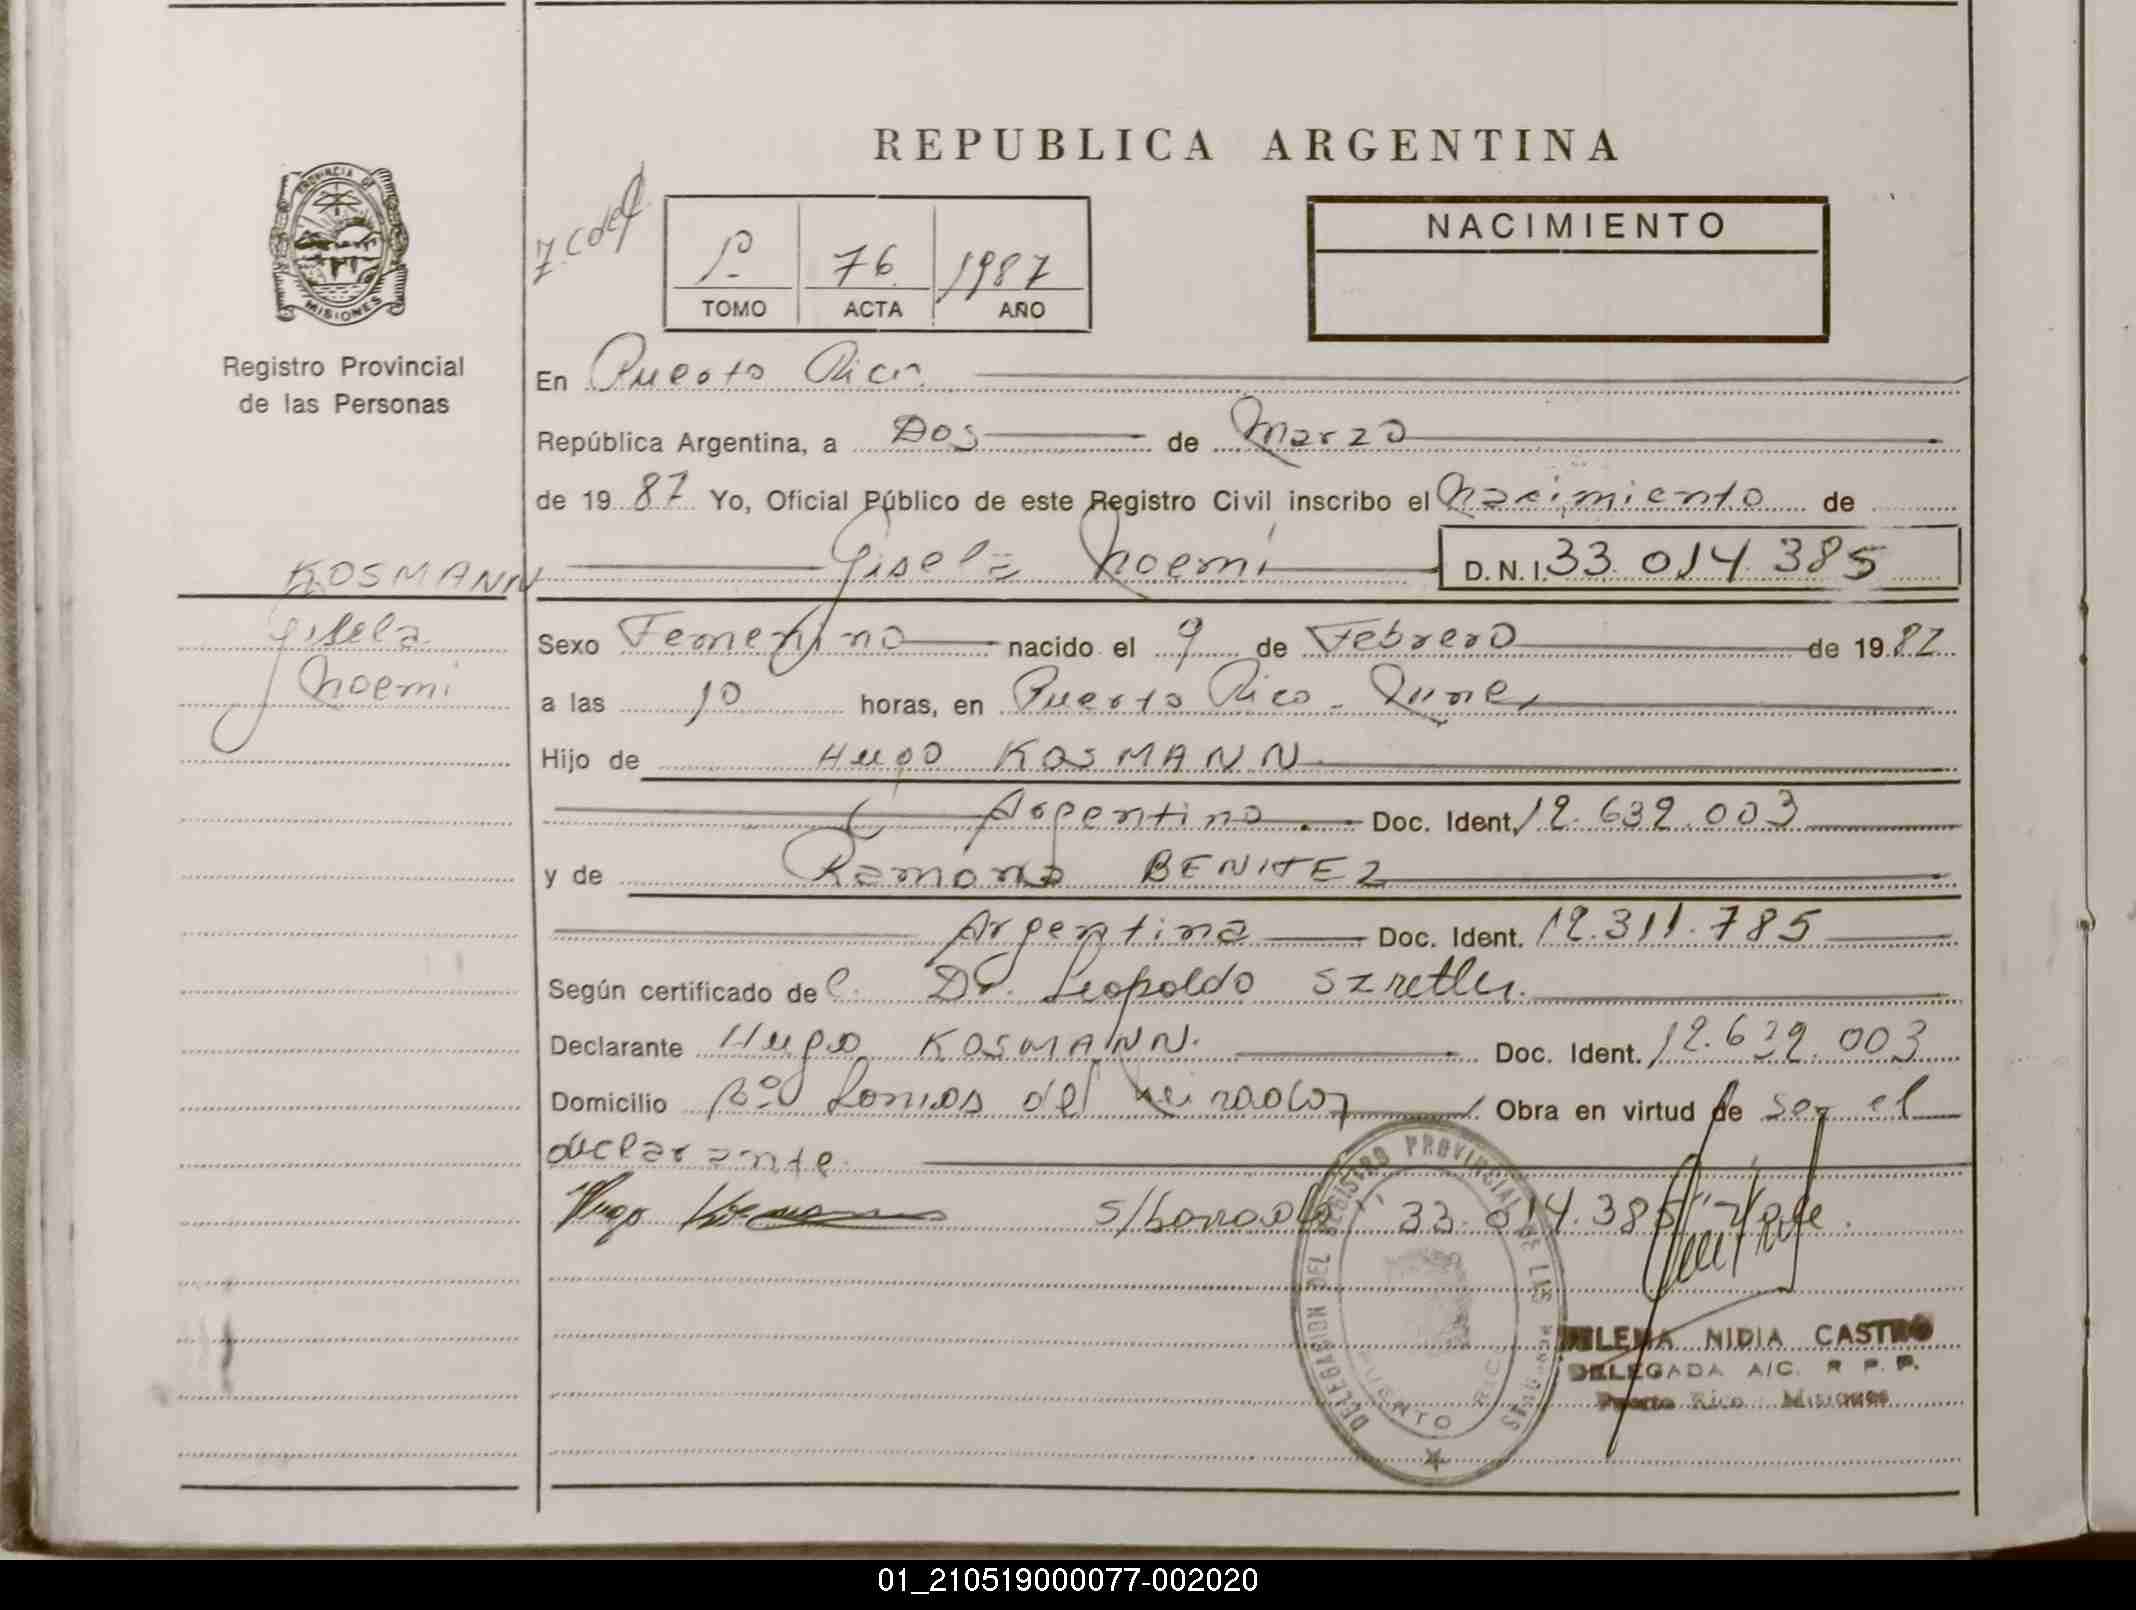 REPUBLICA ARGENTINA
PROVINCIA DE
MISIONES
Registro Provincial
de las Personas
1º 76 1987
TOMO ACTA AÑO
NACIMIENTO
En Puerto Rico
República Argentina, a Dos de Marzo
de 1987 Yo, Oficial Público de este Registro Civil inscribo el Nacimiento de
Gisela Noemi D.N.I. 33.014.385
KOSMANN
Gisela
Noemi
Sexo Femenino nacido el 9 de Febrero de 1987
a las 10 horas, en Puerto Rico -
Hijo de Hugo KOSMANN
Argentino. Doc. Ident. 12.632.003
y de Ramona BENITEZ
Argentina Doc. Ident. 12.311.785
Según certificado del Dr. Leopoldo
Declarante Hugo KOSMANN. Doc. Ident. 12.632.003
Domicilio del Obra en virtud de ser el
declarante.
Hugo Kosmann s/borrado 33.014.385
DELEGACION DEL REGISTRO PROVINCIAL DE LAS PERSONAS
PUERTO RICO
NIDIA CASTRO
DELEGADA A/C. R P. P.
Puerto Rico Misiones
01_210519000077-002020